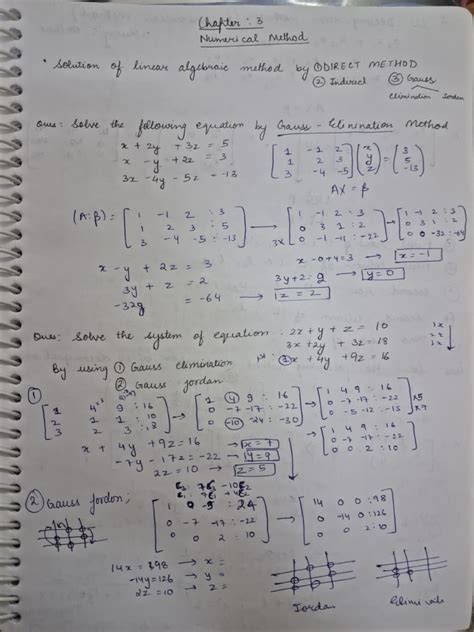 Chapter : 3
Numerical Method
• Solution of linear algebraic method by ① DIRECT METHOD
② Indirect ③ Gauss
elimination Jordan
Ques: Solve the following equation by Gauss - Elimination Method
x + 2y + 3z = 5
x - y + 2z = 3
3x - 4y - 5z = -13
[1 -1 2; 1 2 3; 3 -4 -5] (x; y; z) = (3; 5; -13)
AX = β
(A:β) = [1 -1 2 : 3; 1 2 3 : 5; 3 -4 -5 : -13] → [1 -1 2 : 3; 0 3 1 : 2; 0 -1 -11 : -22] → [1 -1 2 : 3; 0 3 1 : 2; 0 0 -32 : -64]
3x
x - y + 2z = 3
x - 0 + 4 = 3 → x = -1
3y + z = 2
3y + 2 : 2 → y = 0
= -64 → z = 2
Ques: Solve the system of equation : 2x + y + z = 10
3x + 2y + 3z = 18
x + 4y + 9z = 16
By using ① Gauss elimination
② Gauss jordan
①
[1 4 9 : 16; 2 1 1 : 10; 3 2 3 : 18] → [1 4 9 : 16; 0 -7 -17 : -22; 0 -10 -24 : -30] → [1 4 9 : 16; 0 -7 -17 : -22; 0 -5 -12 : -15]
x5
x7
→ [1 4 9 : 16; 0 -7 -17 : -22; 0 0 2 : 10]
x + 4y + 9z = 16 → x = 7
-7y - 17z = -22 → y = 9
2z = 10 → z = 5
② Gauss Jordon;
0 -7 -17 : -22
0 0 2 : 10
→ [14 0 0 : 98; 0 -14 0 : 126; 0 0 2 : 10]
14x = 98 → x =
-14y = 126 → y =
2z = 10 → z =
Jordan